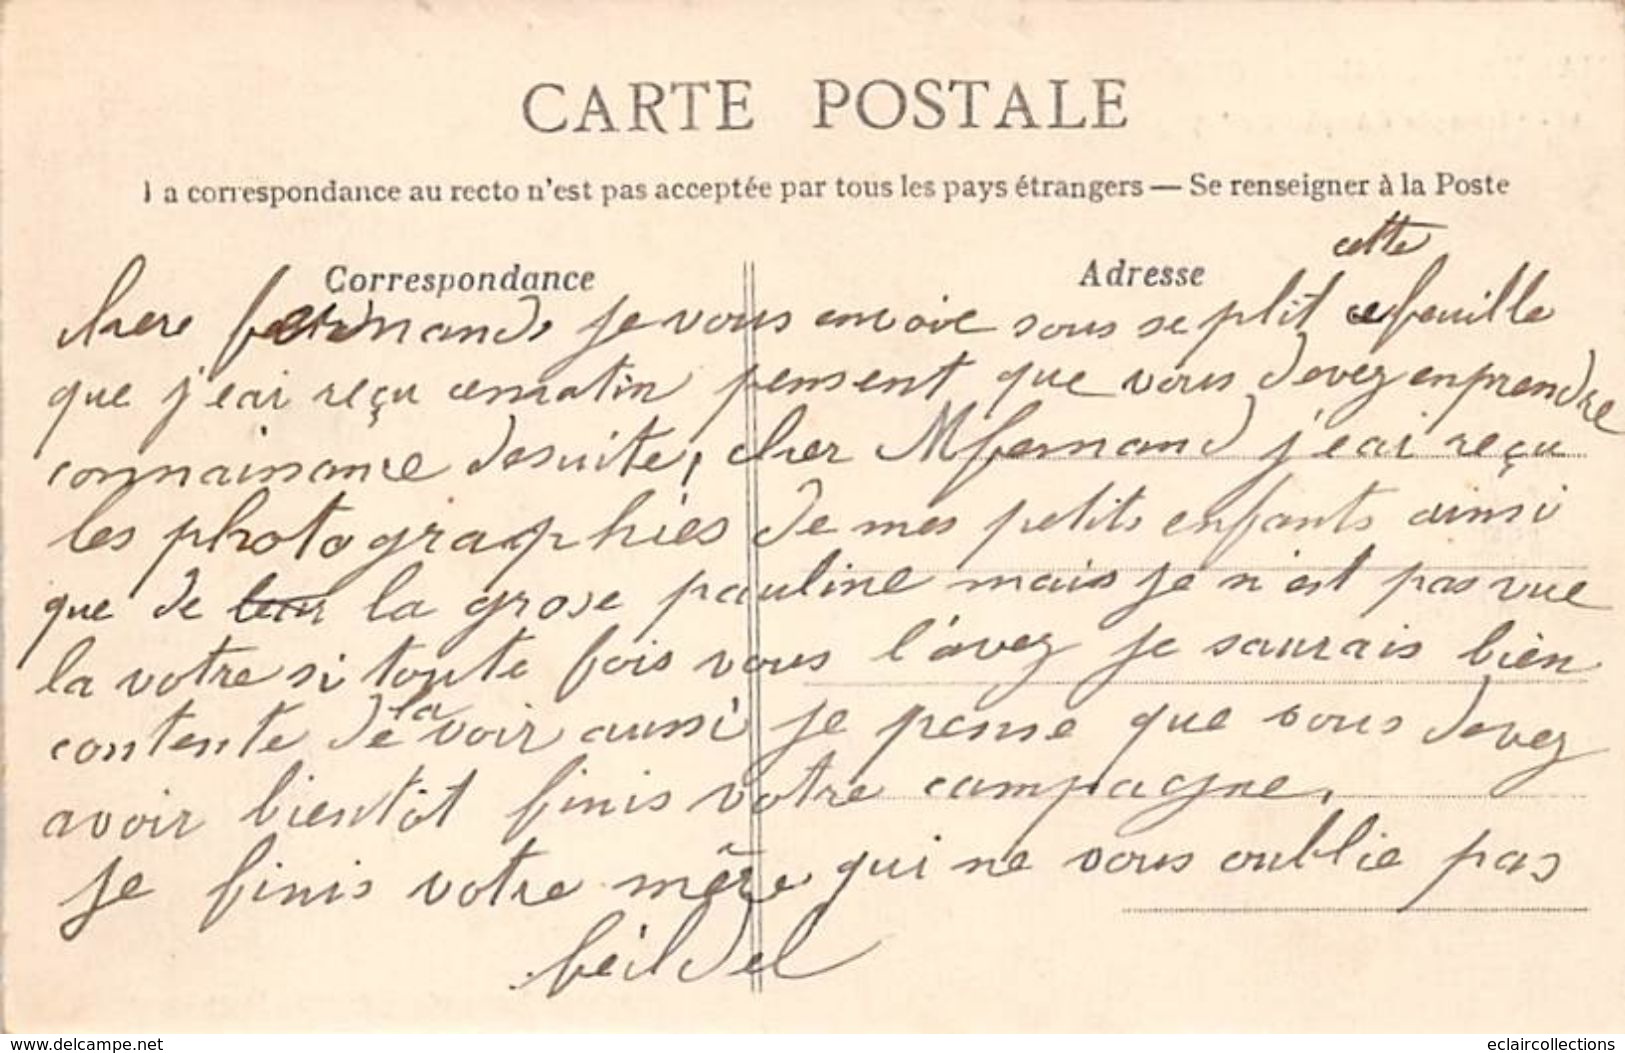 CARTE POSTALE
La correspondance au recto n'est pas acceptée par tous les pays étrangers — Se renseigner à la Poste
Correspondance
Adresse
cette
cher fernand je vous envoie sous se plit ce feuille
que j'eai reçu cematin pensent que vous devez enprendre
connaissance desuite, cher M fernand j'eai reçu
les photographies de mes petits enfants ainsi
que de leur la grose pauline mais je n'est pas vue
la votre si toute fois vous l'avez je saurais bien
contente de la voir aussi je pense que vous devez
avoir bientôt finis votre campagne.
je finis votre mère qui ne vous oublie pas
feildel
www.delcampe.net
eclaircollections